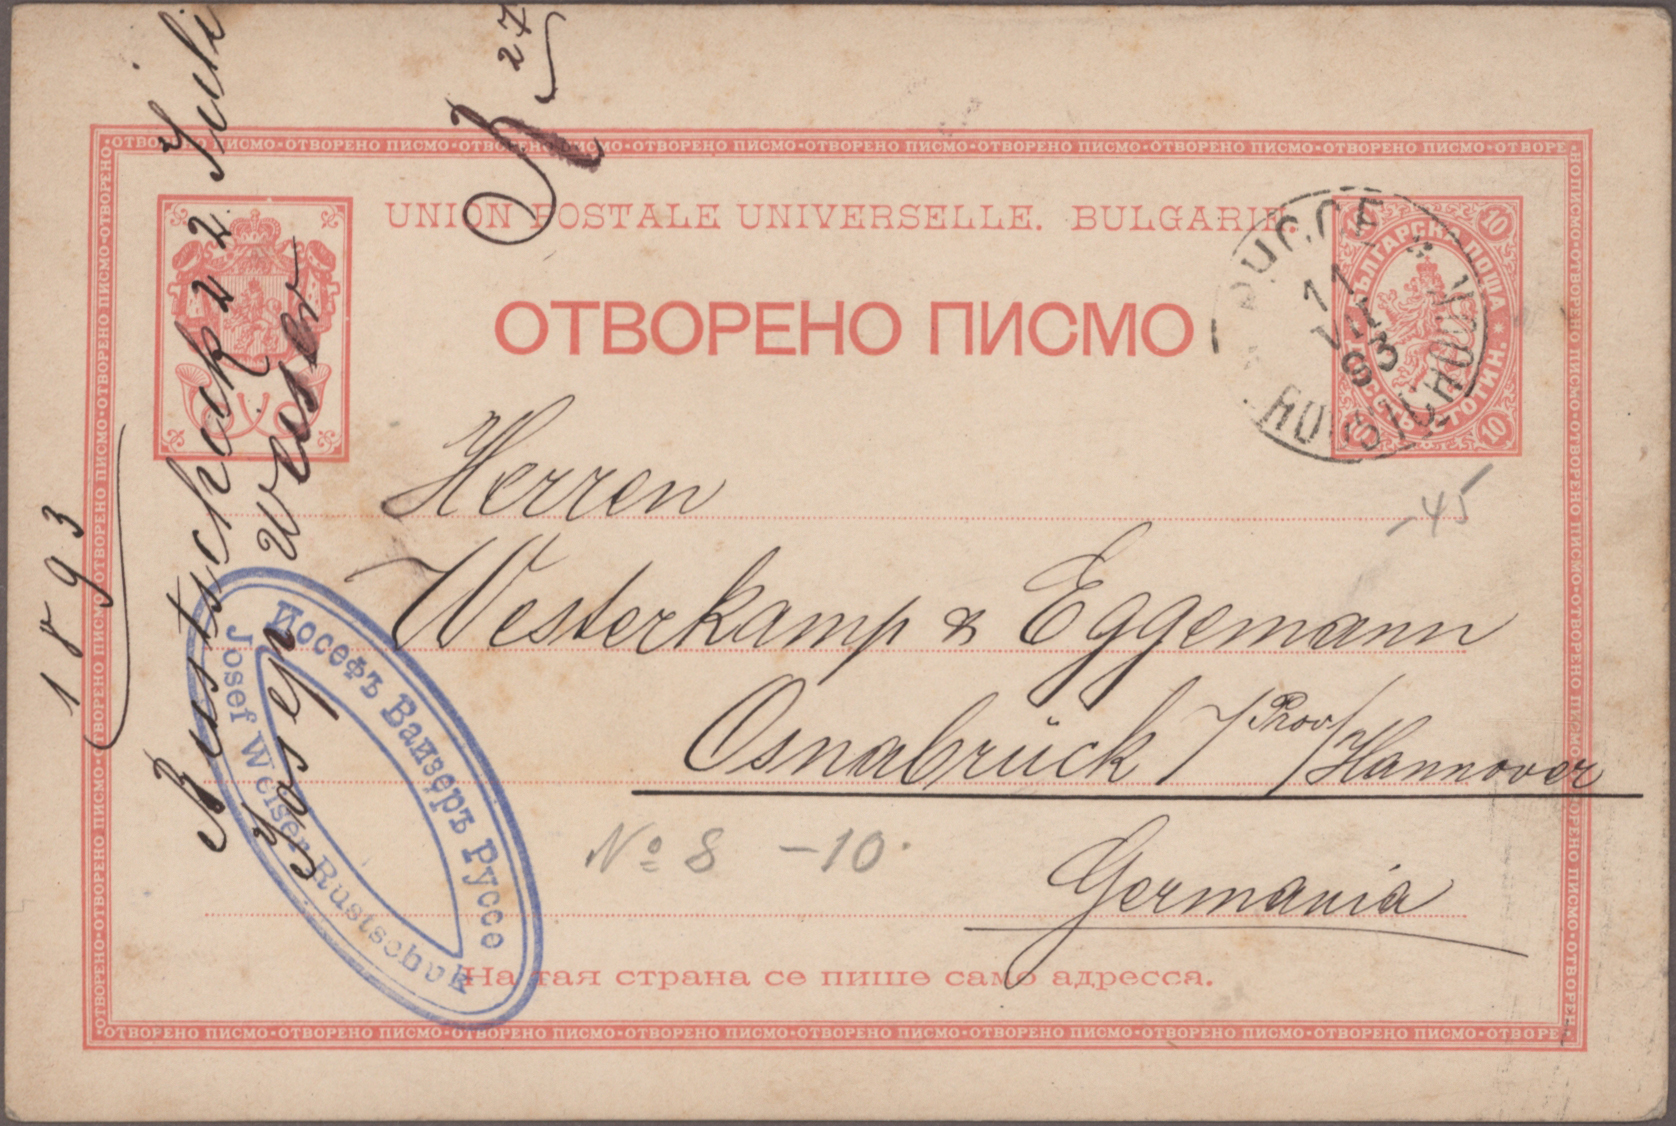 ОТВОРЕНО ПИСМО·ОТВОРЕНО ПИСМО·ОТВОРЕНО ПИСМО·ОТВОРЕНО ПИСМО·ОТВОРЕНО ПИСМО·ОТВОРЕНО ПИСМО·ОТВОРЕ
UNION POSTALE UNIVERSELLE. BULGARIE.
ОТВОРЕНО ПИСМО
10 10
БЪЛГАРСКА ПОЩА
СТОТИН.
10
РУССЕ
11
VII
93
-45
Herren
Westerkamp & Eggemann
Osnabrück /Prov/Hannover
Germania
№ 8 -10.
На тая страна се пише само адресса.
Rustschuk 22 Juli
1893
Josep Weiser
27
Иосефъ Ваизеръ Руссе
Josef Weiser Rustschuk
ОТВОРЕНО ПИСМО·ОТВОРЕНО ПИСМО·ОТВОРЕНО ПИСМО·ОТВОРЕНО ПИСМО·ОТВОРЕНО ПИСМО·ОТВОРЕНО ПИСМО·ОТВОРЕНО ПИСМО·ОТВОРЕНО ПИСМО·ОТВОРЕ